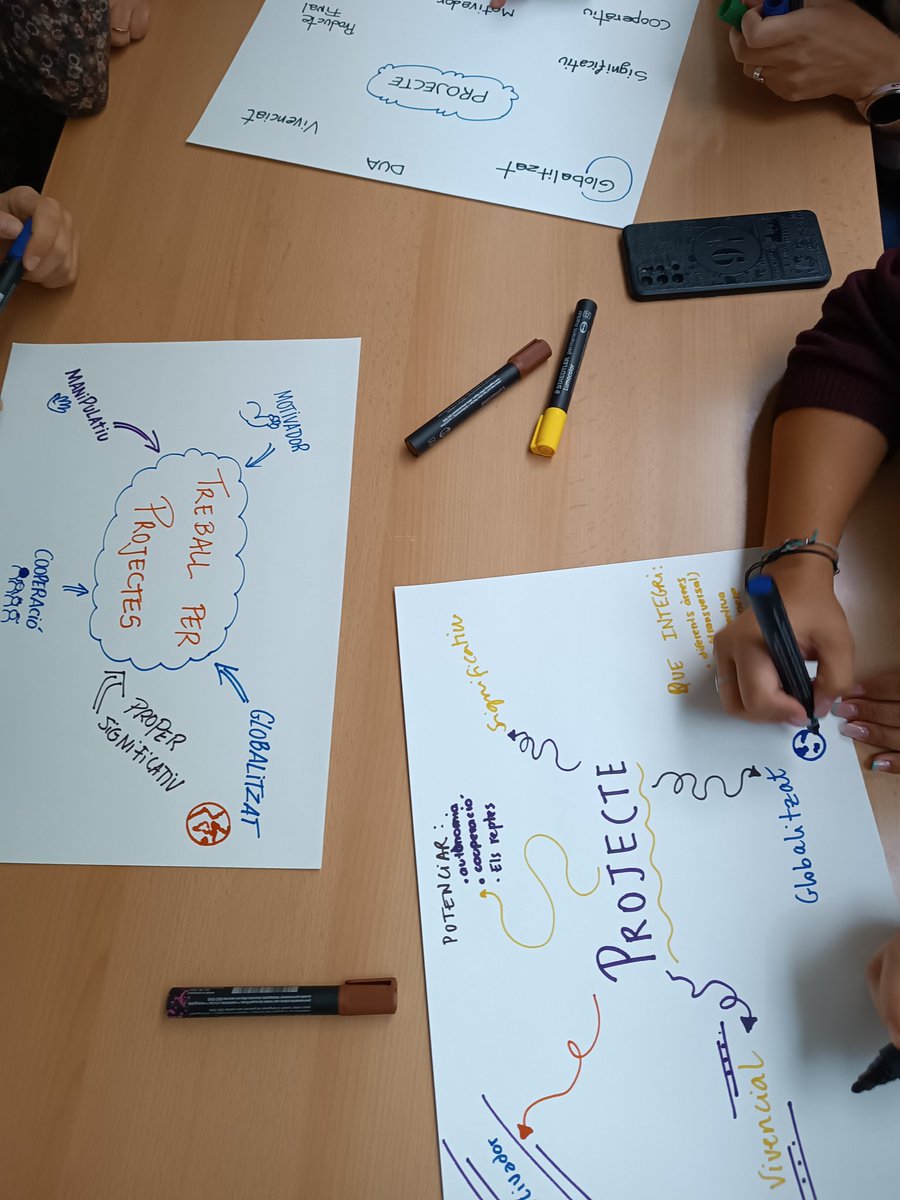 Cooperatiu
Motivador
Producte
Final
Significatiu
PROJECTE
Vivenciat
DUA
Globalitzat
MANIPULATIU
MOTIVADOR
TREBALL PER
PROJECTES
COOPERACIÓ
PROPER
SIGNIFICATIV
GLOBALITZAT
STAEDTLER permanent marker
Lumocolor
Significatiu
QUE INTEGRI:
• diferents àrees
POTENCIAR:
• autònomia
• cooperació
• Els reptes
PROJECTE
Globalitzat
Vivencial